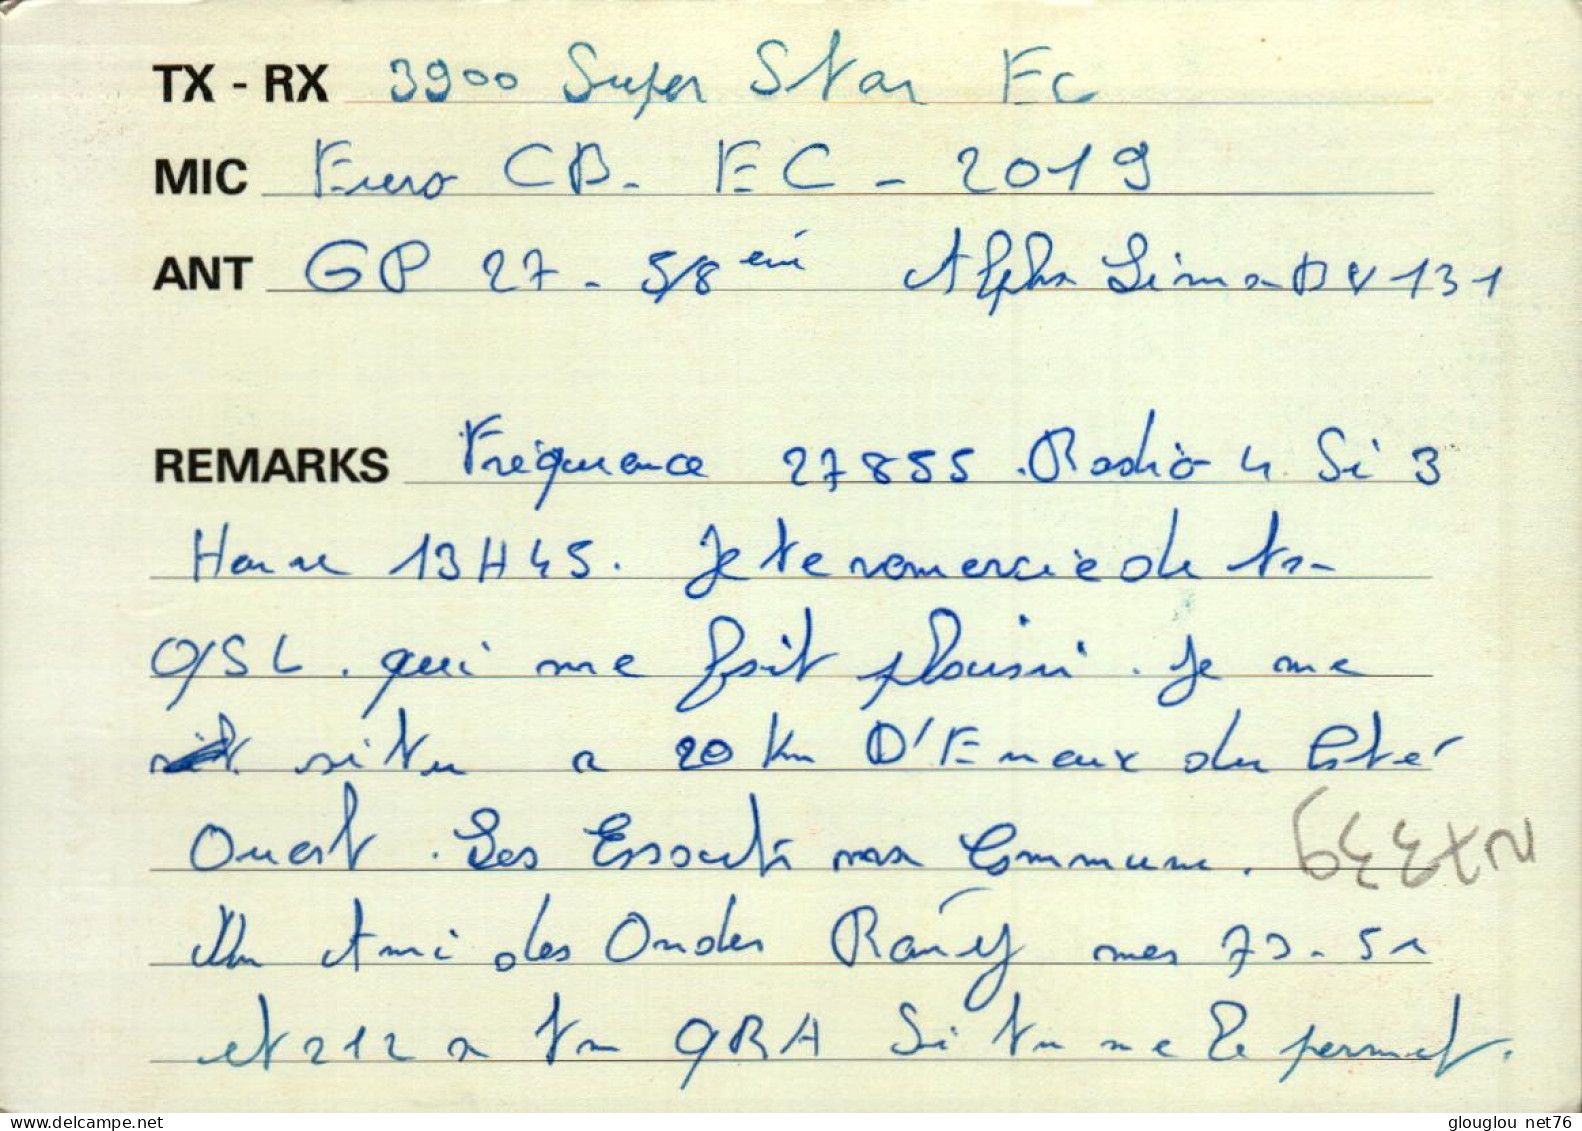 TX - RX 3900 Super Star Ec
MIC Euro CB - EC - 2019
ANT GP 27 - 5/8 emi Alpha Lima BV 131
REMARKS Fréquence 27855 . Radio 4 Si 3
Heure 13H45. Je te remercie de ta
QSL . qui me fait plaisir . Je me
situ a 20 Km D'Evreux du Coté
Ouest . Les Essarts ma Commune.
Un Ami des Ondes Rémy mes 73 - 51
et 212 a ton QRA Si tu me le permet.
glouglou net76